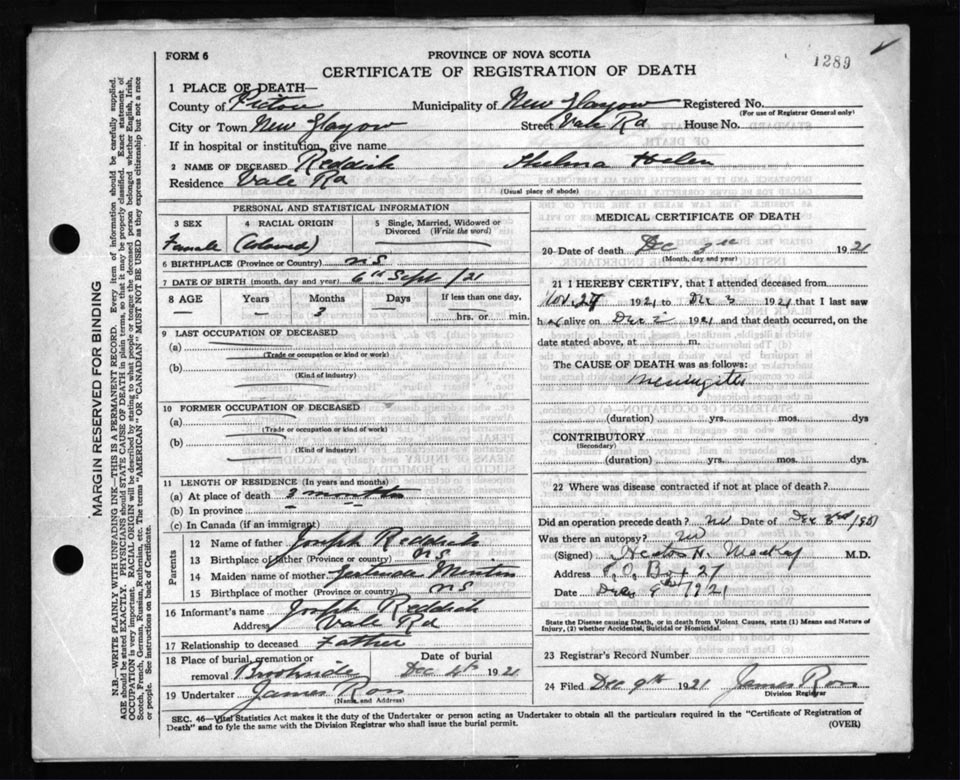 FORM 6
PROVINCE OF NOVA SCOTIA
1289
CERTIFICATE OF REGISTRATION OF DEATH
1 PLACE OF DEATH—
County of Pictou Municipality of New Glasgow Registered No.
(For use of Registrar General only)
City or Town New Glasgow Street Vale Rd House No.
If in hospital or institution, give name
2 NAME OF DECEASED Reddick Thelma Helen
Residence Vale Rd
(Usual place of abode)
PERSONAL AND STATISTICAL INFORMATION
3 SEX 4 RACIAL ORIGIN 5 Single, Married, Widowed or
Divorced (Write the word)
Female (Colored)
6 BIRTHPLACE (Province or Country) N S
7 DATE OF BIRTH (month, day and year) 6th Sept /21
8 AGE Years Months Days If less than one day,
— — 3 hrs. or min.
9 LAST OCCUPATION OF DECEASED
(a)
(Trade or occupation or kind or work)
(b)
(Kind of industry)
10 FORMER OCCUPATION OF DECEASED
(a)
(Trade or occupation or kind of work)
(b)
(Kind of industry)
11 LENGTH OF RESIDENCE (In years and months)
(a) At place of death 3 months
(b) In province
(c) In Canada (if an immigrant)
Parents
12 Name of father Joseph Reddick
13 Birthplace of father (Province or country) N S
14 Maiden name of mother Gertrude
15 Birthplace of mother (Province or country) N S
16 Informant's name Joseph Reddick
Address Vale Rd
17 Relationship to deceased Father
18 Place of burial, cremation or Date of burial
removal Brookside Dec 4th 1921
19 Undertaker James Ross
(Name and Address)
MEDICAL CERTIFICATE OF DEATH
20 Date of death Dec 3rd 1921
(Month, day and year)
21 I HEREBY CERTIFY, that I attended deceased from
Nov. 27 1921 to Dec 3 1921 that I last saw
h er alive on Dec 2 1921 and that death occurred, on the
date stated above, at m.
The CAUSE OF DEATH was as follows:
Meningitis
(duration) yrs. mos. dys
CONTRIBUTORY
(Secondary)
(duration) yrs. mos. dys.
22 Where was disease contracted if not at place of death?
Did an operation precede death? no Date of
Was there an autopsy? no
(Signed) H. MacKay M.D.
Address P.O. Box 27
Date 1921
State the Disease causing Death, or in death from Violent Causes, state (1) Means and Nature of
Injury, (2) whether Accidental, Suicidal or Homicidal.
23 Registrar's Record Number
24 Filed Dec 9th 1921 James Ross
Division Registrar
SEC. 46—Vital Statistics Act makes it the duty of the Undertaker or person acting as Undertaker to obtain all the particulars required in the "Certificate of Registration of
Death" and to fyle the same with the Division Registrar who shall issue the burial permit.
(OVER)
MARGIN RESERVED FOR BINDING
N.B.—WRITE PLAINLY WITH UNFADING INK—THIS IS A PERMANENT RECORD. Every item of information should be carefully supplied.
AGE should be stated EXACTLY. PHYSICIANS should STATE CAUSE OF DEATH in plain terms, so that it may be properly classified. Exact statement of
OCCUPATION is very important. RACIAL ORIGIN will be described by stating to what people or tongue the deceased person belonged, whether English, Irish,
Scotch, French, German, Russian, Ruthenian, etc. The terms "AMERICAN" OR "CANADIAN" MUST NOT BE USED as they express citizenship but not a race
or people. See instructions on back of Certificate.